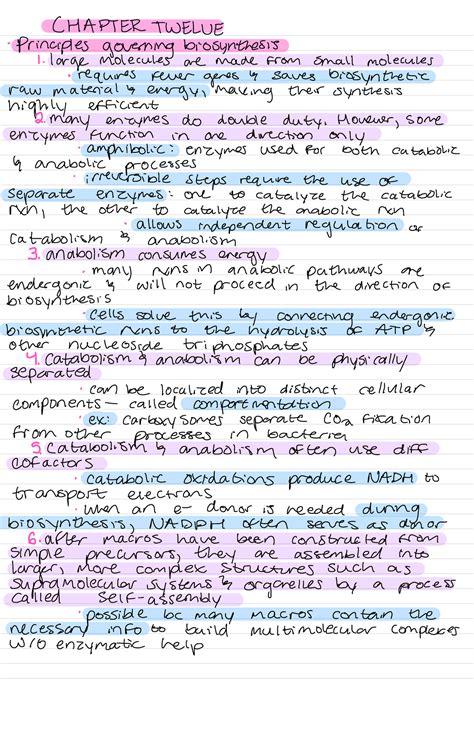 CHAPTER TWELVE
· Principles governing biosynthesis
1. large molecules are made from small molecules
· requires fewer genes & saves biosynthetic
raw material & energy, making their synthesis
highly efficient
2. many enzymes do double duty. However, some
enzymes function in one direction only
· amphibolic: enzymes used for both catabolic
& anabolic processes
· irreversible steps require the use of
separate enzymes: one to catalyze the catabolic
rxn, the other to catalyze the anabolic rxn
· allows independent regulation of
catabolism & anabolism
3. anabolism consumes energy
· many rxns in anabolic pathways are
endergonic & will not proceed in the direction of
biosynthesis
· cells solve this by connecting endergonic
biosynthetic rxns to the hydrolysis of ATP &
other nucleoside triphosphates
4. Catabolism & anabolism can be physically
separated
· can be localized into distinct cellular
components — called compartmentation
· ex: carboxysomes separate CO2 fixation
from other processes in bacteria
5. Catabolism & anabolism often use diff
cofactors
· catabolic oxidations produce NADH to
transport electrons
· when an e- donor is needed during
biosynthesis, NADPH often serves as donor
6. after macros have been constructed from
simple precursors, they are assembled into
larger, more complex structures such as
supramolecular systems & organelles by a process
called self-assembly
· possible bc many macros contain the
necessary info to build multimolecular complexes
w/o enzymatic help